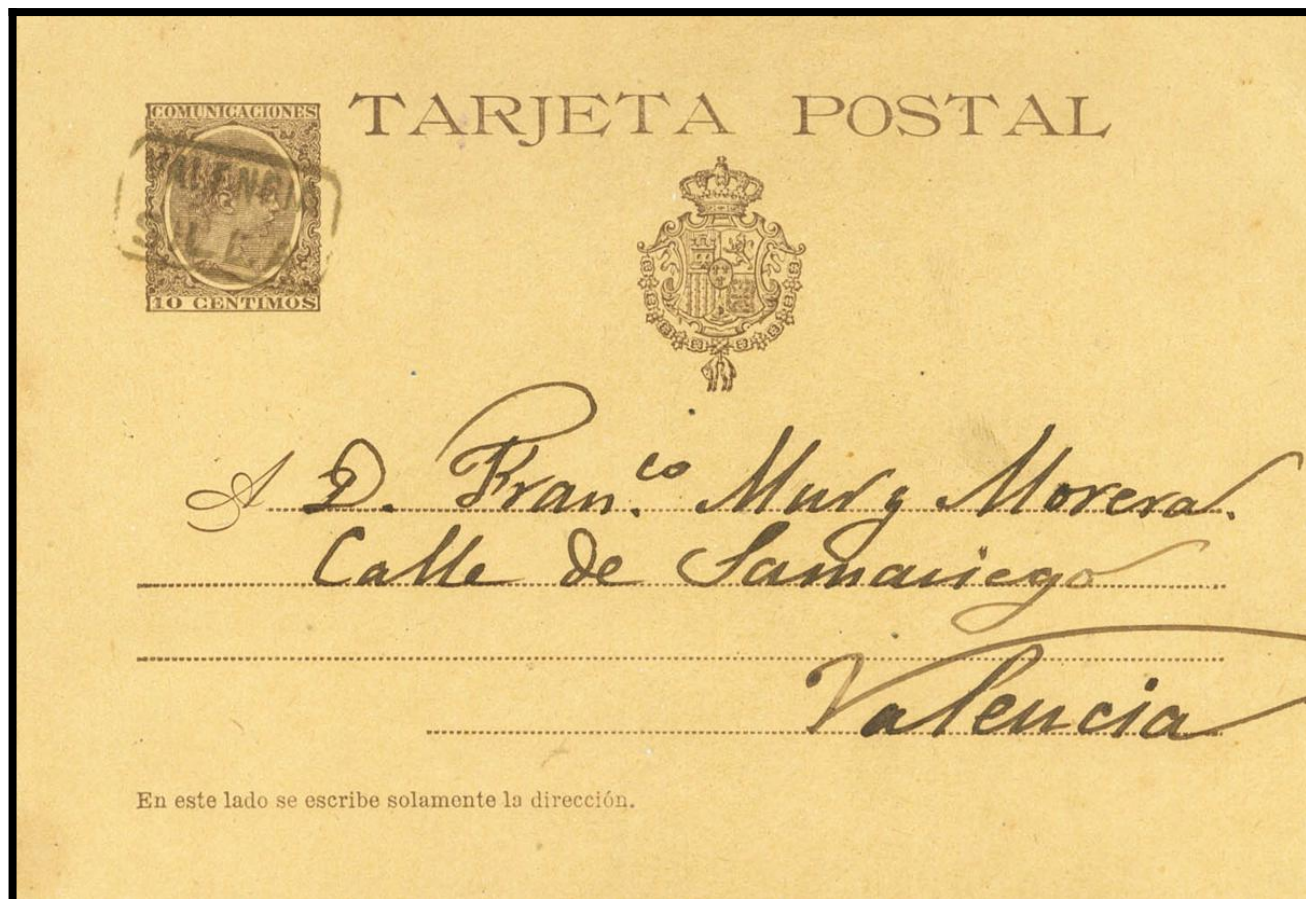 COMUNICACIONES
TARJETA POSTAL
10 CENTIMOS
A D. Fran.co Mur y Morera.
Calle de Samaniego
Valencia
En este lado se escribe solamente la dirección.